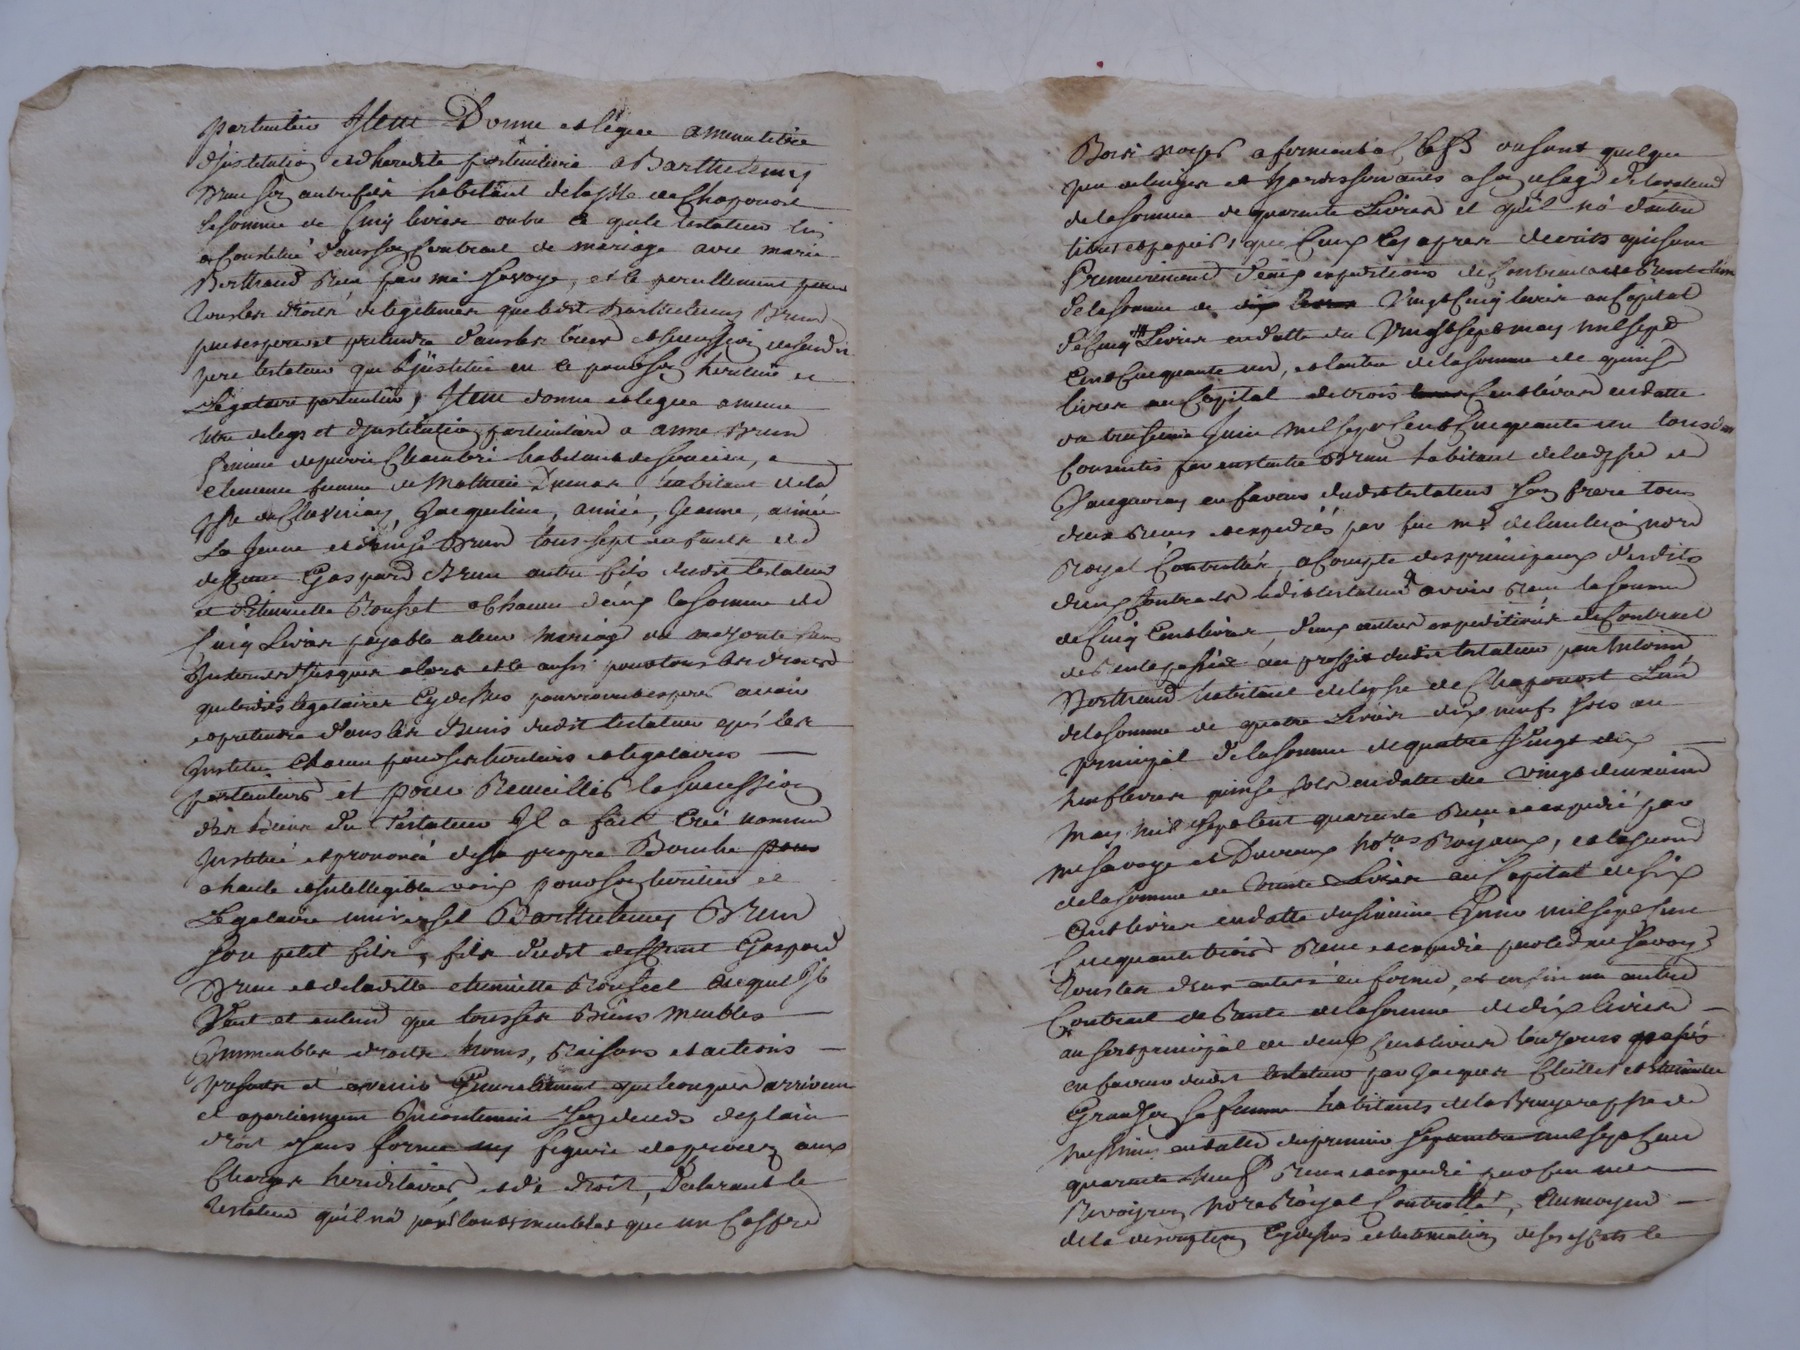 particulier Item Donne et legue a meme titre
d'institution et d'heredite particuliere a Barthelemy
Brun son autre fils habitant de la psse de Chaponost
la somme de Cinq livres outre ce que le testateur luy
a Constitué dans son Contrat de mariage avec marie
Berthaud Reçu par me Savoye, et ce pareillement pour
tous les droits de legitimes que ledit Barthelemy Brun
peut esperer et pretendre dans les biens et succession de sondit
pere testateur qui l'institue en ce pour son heritier et
Légataire particulier, Item donne et legue a meme
titre de legs et d'institution particuliere a anne Brun
femme de pierre Chambri habitant de , a
etiennette femme de Mathieu Dumas habitant de la
psse de , Jacqueline, aimée, Jeanne, aimée
La Jeune et Brun tous sept enfants de
deffunt Gaspard Brun autre fils dudit testateur
et d'Etiennette Rousset a Chacun d'eux la somme de
Cinq Livres payable a leur mariage ou majorité sans
Interest Jusques alors et ce aussi pour tous les droits
que lesdits légataires Cy dessus pourroient esperer avoir
et pretendre dans les Biens dudit testateur qui les
Institue Chacun pour ses heritiers et legataires
particuliers et pour Recueillir la succession
des biens du Testateur Il a fait Créé nommé
Institué et prononcé de sa propre Bouche
a haute et Intelligible voix pour son heritier et
Légataire universel Barthelemy Brun
son petit fils, fils dudit deffunt Gaspard
Brun et de ladite etiennette Rousset auquel Il
Veut et entend que tous ses Biens Meubles
Immeubles droits Noms, Raisons et actions
presents et avenir Generalement quelconques arrivent
et apartiennent Incontinent son deceds de plain
droit sans forme ny figure de procez, aux
Charges hereditaires, et de droit, Declarant le
Testateur qu'il n'a pour tous meubles que un Coffre
Bois noyer a fermant a Clef usant quelque
peu de linges et a son usage de la valeur
de la somme de quarante Livres et qu'il n'a d'autres
titres et papiers, que Ceux Cy apres decrits qui sont
Premierement deux expeditions de Contrat de Rente l'un
de la somme de Vingt Cinq livres au Capital
de Cinq Livres en datte du Vingt sept may mil sept
Cent Cinquante un, et l'autre de la somme de quinze
livres au Capital de trois Cent livres en datte
du treisieme Juin mil sept Cent Cinquante un tous deux
Consentis par Brun habitant de ladite psse de
en faveur dudit testateur son frere tous
deux Reçus et expediés par feu me
Royal Controllés, a Compte des principaux desdits
deux Contrats ledit testateur avoir Reçu la somme
de Cinq Cent livres, deux autres expeditions de Contract
de rente passés au proffit dudit testateur par Antoine
Berthaud habitant de la psse de Chaponost L'un
de la somme de quatre Livres dix neuf sols au
principal de la somme de quatre Vingt dix
neuf livres quinse sols en datte du vingt deuxieme
May Mil sept Cent quarante Reçu et expedié par
me Savoye et Notres Royaux, et le second
de la somme de trente Livres au Capital de six
Cent livres en datte du sixieme Juin mil sept Cent
Cinquante trois Reçu et expedié par ledit me Savoye
tous les deux en forme, et enfin un autre
Contrat de Rente de la somme de dix livres
au sort principal de deux Cent livres toujours passés
en faveur dudit testateur par Jacques et
Grandjon sa femme habitants de la Bruyere psse de
Messimy en datte du premier septembre mil sept Cent
quarante neuf Reçu et expedié par feu me
Notre Royal Controllé, Au moyen
de la description Cy dessus et estimation de ses effets le